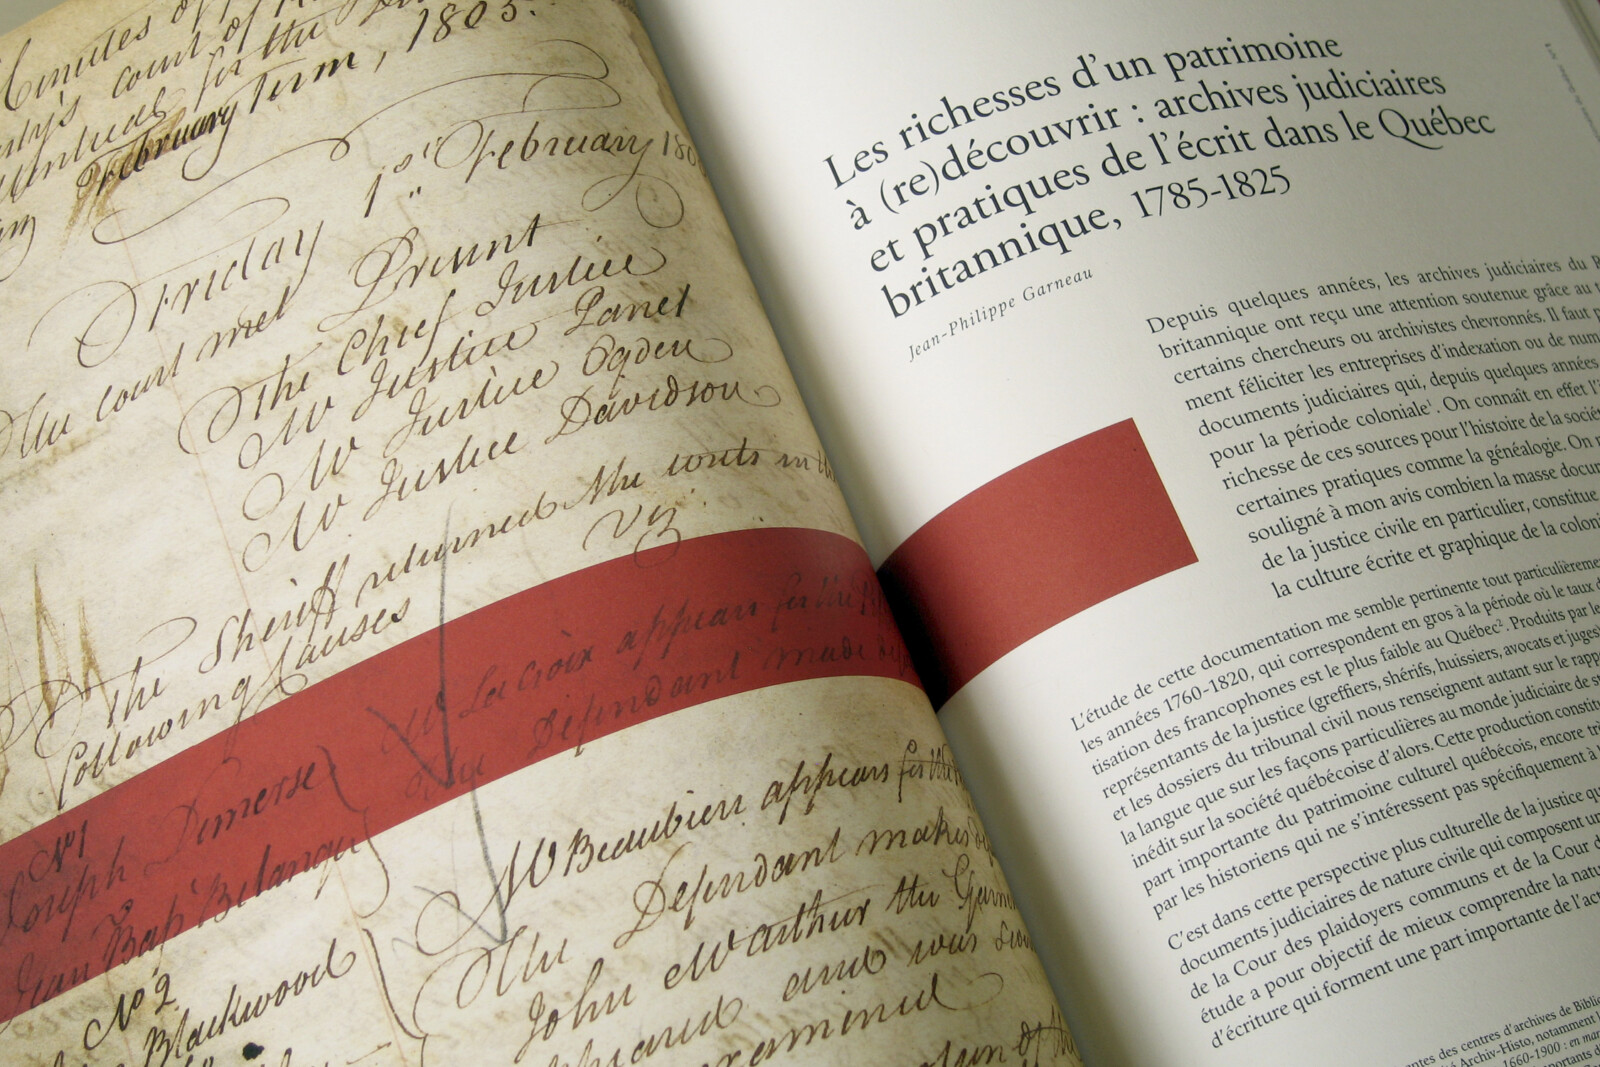 Minutes of
court of
for the
February Term, 1805.
Friday 1st February 180
The court met Present
The Chief Justice
Mr Justice Panet
Mr Justice Ogden
Mr Justice Davidson
The Sheriff returned the writs in the
following Causes viz
No 1
Joseph Demerse
Jean Bapt Belanger
Mr Lacroix appears for the
The Defendant made
No 2
Blackwood
Mr Beaubien appears for the
The Defendant makes
John McArthur the
and was
of the
Les richesses d'un patrimoine
à (re)découvrir : archives judiciaires
et pratiques de l'écrit dans le Québec
britannique, 1785-1825
Jean-Philippe Garneau
Depuis quelques années, les archives judiciaires du
britannique ont reçu une attention soutenue grâce au
certains chercheurs ou archivistes chevronnés. Il faut
ment féliciter les entreprises d'indexation ou de num
documents judiciaires qui, depuis quelques années
pour la période coloniale¹. On connaît en effet l'i
richesse de ces sources pour l'histoire de la socié
certaines pratiques comme la généalogie. On
souligné à mon avis combien la masse docum
de la justice civile en particulier, constitue
la culture écrite et graphique de la coloni
L'étude de cette documentation me semble pertinente tout particulièreme
les années 1760-1820, qui correspondent en gros à la période où le taux d
tisation des francophones est le plus faible au Québec². Produits par les
représentants de la justice (greffiers, shérifs, huissiers, avocats et juges)
et les dossiers du tribunal civil nous renseignent autant sur le rapp
la langue que sur les façons particulières au monde judiciaire de s
inédit sur la société québécoise d'alors. Cette production constitu
part importante du patrimoine culturel québécois, encore trè
par les historiens qui ne s'intéressent pas spécifiquement à
C'est dans cette perspective plus culturelle de la justice qu
documents judiciaires de nature civile qui composent un
de la Cour des plaidoyers communs et de la Cour d
étude a pour objectif de mieux comprendre la natu
d'écriture qui forment une part importante de l'ac
centres d'archives de Biblio
Archiv-Histo, notamment l
1660-1900 : en mar